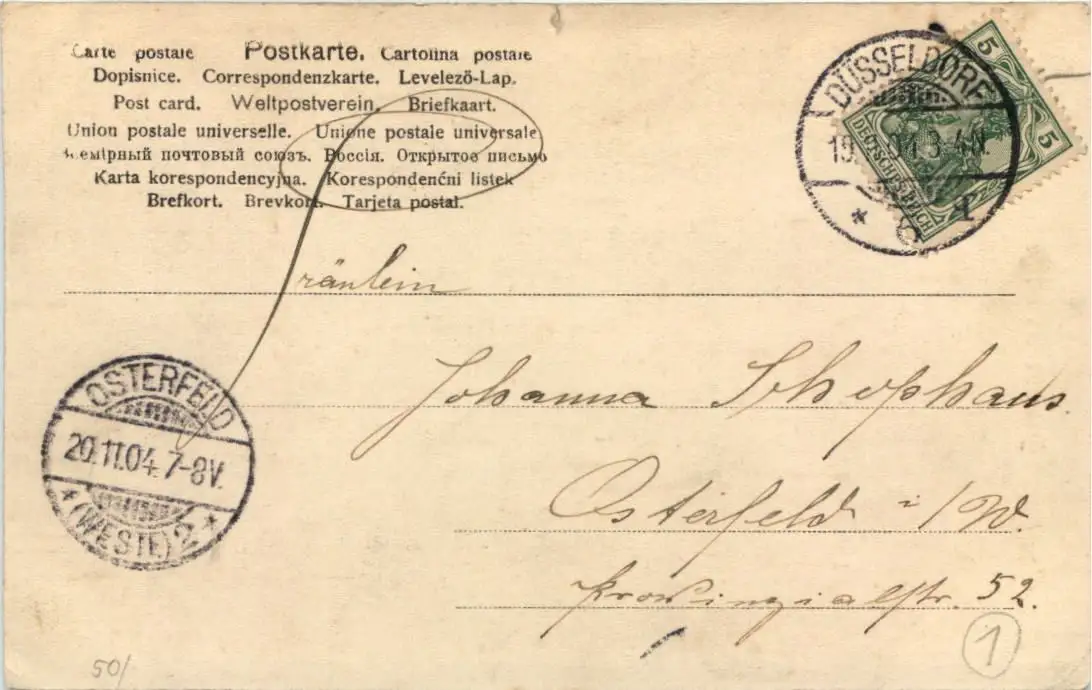 Carte postale Postkarte. Cartolina postale
Dopisnice. Correspondenzkarte. Levelező-Lap.
Post card. Weltpostverein. Briefkaart.
Union postale universelle. Unione postale universale
Всемірный почтовый союзъ. Россія. Открытое письмо
Karta korespondencyjna. Korespondenčni listek
Brefkort. Brevkort. Tarjeta postal.
DÜSSELDORF
4N.
1
5
5
DEUTSCHES REICH
Fräulein
Johanna Schophaus
Osterfeld i/W.
Provinzialstr. 52.
OSTERFELD
20.11.04. 7-8V.
* (WESTF.) 2 *
1
50/